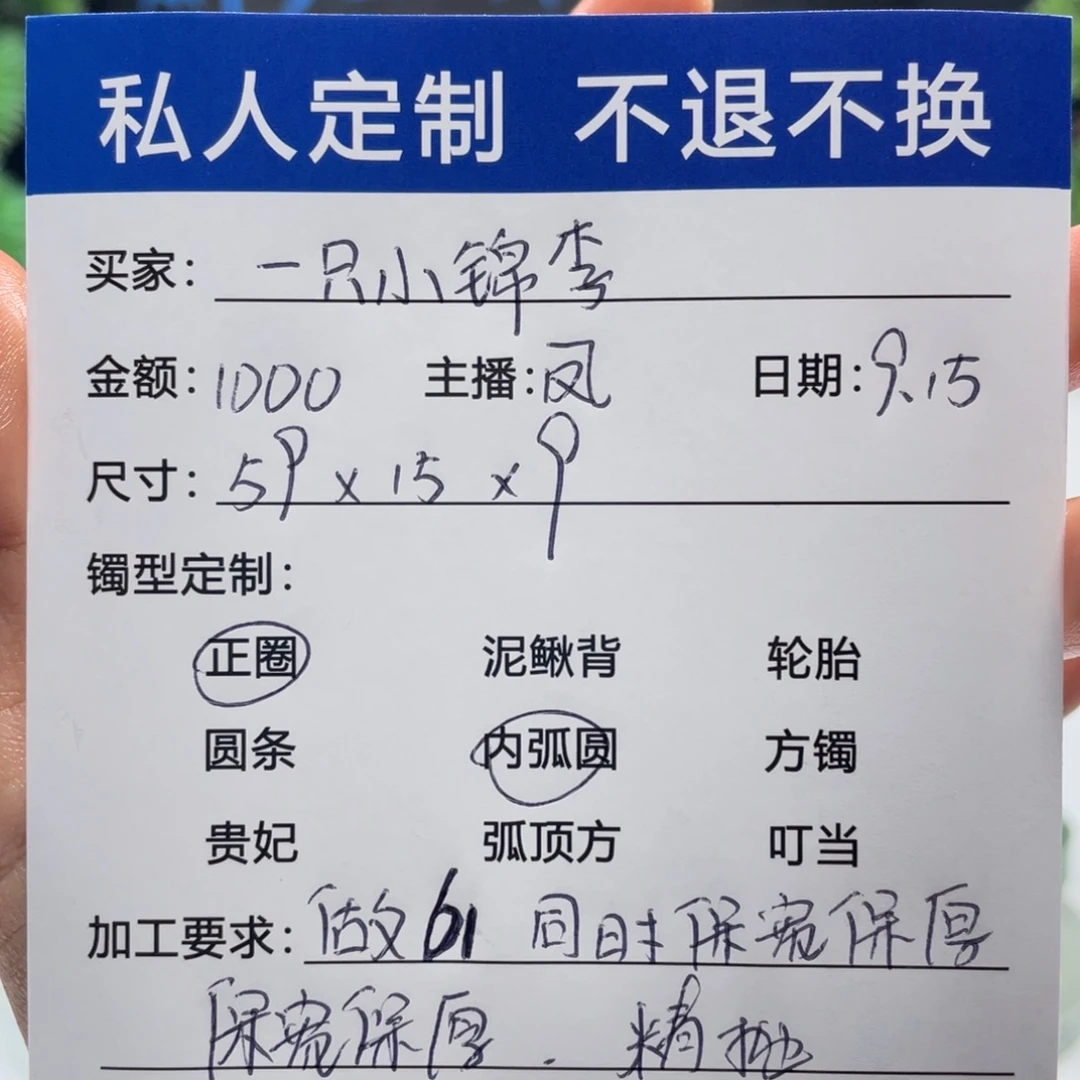 私人定制 不退不换
买家：一只小锦李
金额：1000 主播：凤 日期：9.15
尺寸：59 x 15 x 9
镯型定制：
正圈 泥鳅背 轮胎
圆条 内弧圆 方镯
贵妃 弧顶方 叮当
加工要求：做61 同时保宽保厚
保宽保厚．精抛